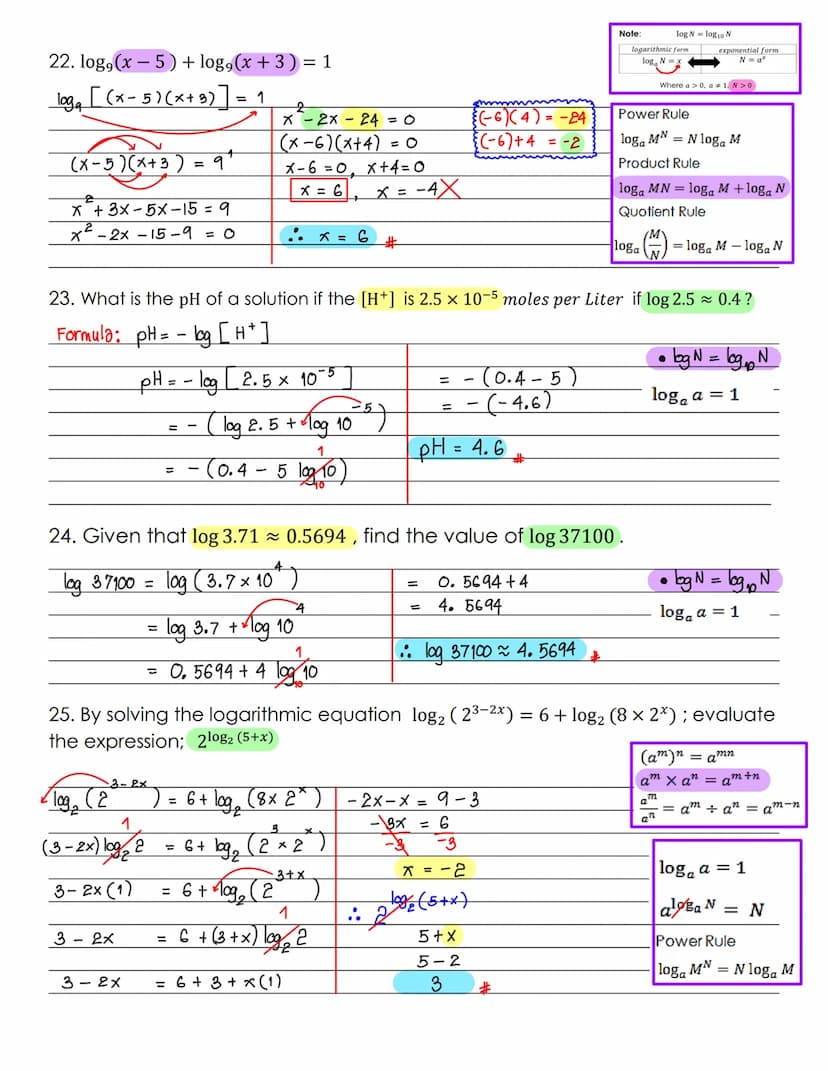 Note: log N = log₁₀ N
logarithmic form exponential form
logₐ N = x N = aˣ
Where a > 0, a ≠ 1, N > 0
22. log₉(x − 5) + log₉(x + 3) = 1
log₉ [(x-5)(x+3)] = 1
(x-5)(x+3) = 9¹
x² + 3x - 5x - 15 = 9
x² - 2x - 15 - 9 = 0
x² - 2x - 24 = 0
(x-6)(x+4) = 0
x-6 = 0, x+4 = 0
x = 6, x = -4 X
∴ x = 6 #
(-6)(4) = -24
(-6)+4 = -2
Power Rule
logₐ Mᴺ = N logₐ M
Product Rule
logₐ MN = logₐ M + logₐ N
Quotient Rule
logₐ (M/N) = logₐ M − logₐ N
23. What is the pH of a solution if the [H⁺] is 2.5 × 10⁻⁵ moles per Liter if log 2.5 ≈ 0.4 ?
Formula: pH = - log [H⁺]
pH = - log [2.5 × 10⁻⁵]
= - (log 2.5 + log 10⁻⁵)
= - (0.4 - 5 log₁₀10) 1
= - (0.4 - 5)
= - (-4.6)
pH = 4.6 #
• log N = log₁₀ N
logₐ a = 1
24. Given that log 3.71 ≈ 0.5694 , find the value of log 37100 .
log 37100 = log (3.7 × 10⁴)
= log 3.7 + log 10⁴
= 0.5694 + 4 log₁₀10 1
= 0.5694 + 4
= 4.5694
∴ log 37100 ≈ 4.5694 #
• log N = log₁₀ N
logₐ a = 1
25. By solving the logarithmic equation log₂ ( 2³⁻²ˣ) = 6 + log₂ (8 × 2ˣ) ; evaluate
the expression; 2^(log₂ (5+x))
log₂ (2³⁻²ˣ) = 6 + log₂ (8 × 2ˣ)
(3-2x) log₂2 1 = 6 + log₂ (2³ × 2ˣ)
3 - 2x (1) = 6 + log₂ (2³⁺ˣ)
3 - 2x = 6 + (3+x) log₂2 1
3 - 2x = 6 + 3 + x (1)
-2x - x = 9 - 3
-3x = 6
-3 -3
x = -2
∴ 2^(log₂ (5+x))
5 + x
5 - 2
3 #
(aᵐ)ⁿ = aᵐⁿ
aᵐ × aⁿ = aᵐ⁺ⁿ
aᵐ/aⁿ = aᵐ ÷ aⁿ = aᵐ⁻ⁿ
logₐ a = 1
a^(logₐ N) = N
Power Rule
logₐ Mᴺ = N logₐ M